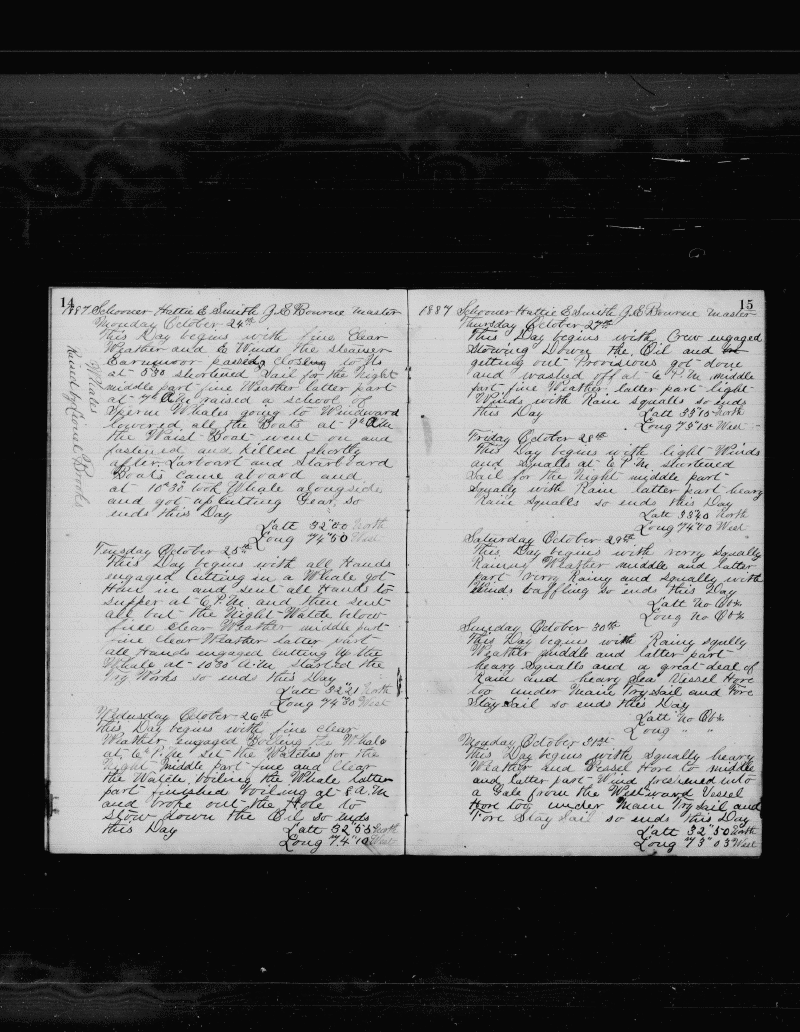 14
1887 Schooner Hattie E Smith J. E Bourne Master
Monday October 24th
This Day begins with fine Clear
Weather and E Winds the steamer
passed Closing to its
at 5.30 shortened Sail for the Night
middle part fine Weather latter part
at 7 A.M raised a school of
Sperm Whales going to Windward
lowered all the Boats at 9 A.M
the Waist Boat went on and
fastened and killed shortly
after Larboart and Starboard
Boats came aboard and
at 10"30 took Whale alongside
and got up Cutting Gear, so
ends this Day
Latt 32"50 North
Long 74"50 West
Whales
Raised by Lional Brooks
Tuesday October 25th
This Day begins with all Hands
engaged Cutting in a Whale got
Him in and sent all Hands to
supper at 6 P.M and then sent
all but the Night Watch below
fine Clear Weather middle part
fine Clear Weather latter part
all Hands engaged Cutting up the
Whale at 10"30 A.M. started the
Try Works so ends this Day
Latt 32"21 North
Long 74"30 West
Wednusday October 26th
This Day begins with fine Clear
Weather engaged Boiling the Whale
at 6 P.M set the Watches for the
Night Middle part fine and Clear
the Watch Boiling the Whale latter
part finished Boiling at 8 A.M
and broke out the Hole to
Stow down the Oil so ends
this Day
Latt 32"55 North
Long 74"10 West
15
1887 Schooner Hattie E Smith J. E Bourne Master
Thursday October 27th
This Day begins with, Crew engaged
Stowing Down the Oil and
getting out Provisions got done
and washed off at 6 P.M. middle
part fine Weather latter part light
Winds with Rain squalls so ends
this Day
Latt 33"15 North
Long 73"15 West
Friday October 28th
This Day begins with light Winds
and squalls at 6 P.M. shortened
Sail for the Night middle part
squally with Rain latter part heavy
Rain squalls so ends this Day
Latt 33"40 North
Long 74"00 West
Saturday October 29th
This Day begins with verry squally
Rainny Weather middle and latter
part verry Rainy and squally with
Winds baffling so ends this Day
Latt no Obs
Long no Obs
Sunday October 30th
This Day begins with Rainy sqully
Weather middle and latter part
heavy Squalls and a great deal of
Rain and heavy sea Vessel Hove
too under Main Try Sail and Fore
Stay Sail so ends this Day
Latt no Obs
Long " "
Monday October 31st
This Day begins with squally heavy
Weather and Vessel Hove to middle
and latter part Wind freshened into
a Gale from the Westward Vessel
Hove too under Main Try Sail and
Fore Stay Sail so ends this Day
Latt 32"50 North
Long "73"03 West